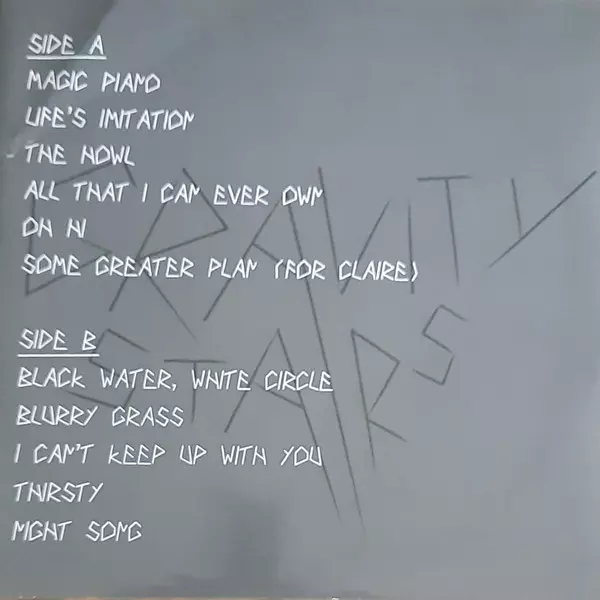 SIDE A
MAGIC PIANO
LIFE'S IMITATION
THE HOWL
ALL THAT I CAN EVER OWN
OH HI
SOME GREATER PLAN (FOR CLAIRE)
SIDE B
BLACK WATER, WHITE CIRCLE
BLURRY GRASS
I CAN'T KEEP UP WITH YOU
THIRSTY
NIGHT SONG
GRAVITY
STAIRS